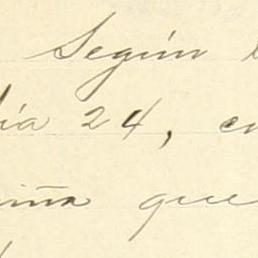 Según
día 24, en
que